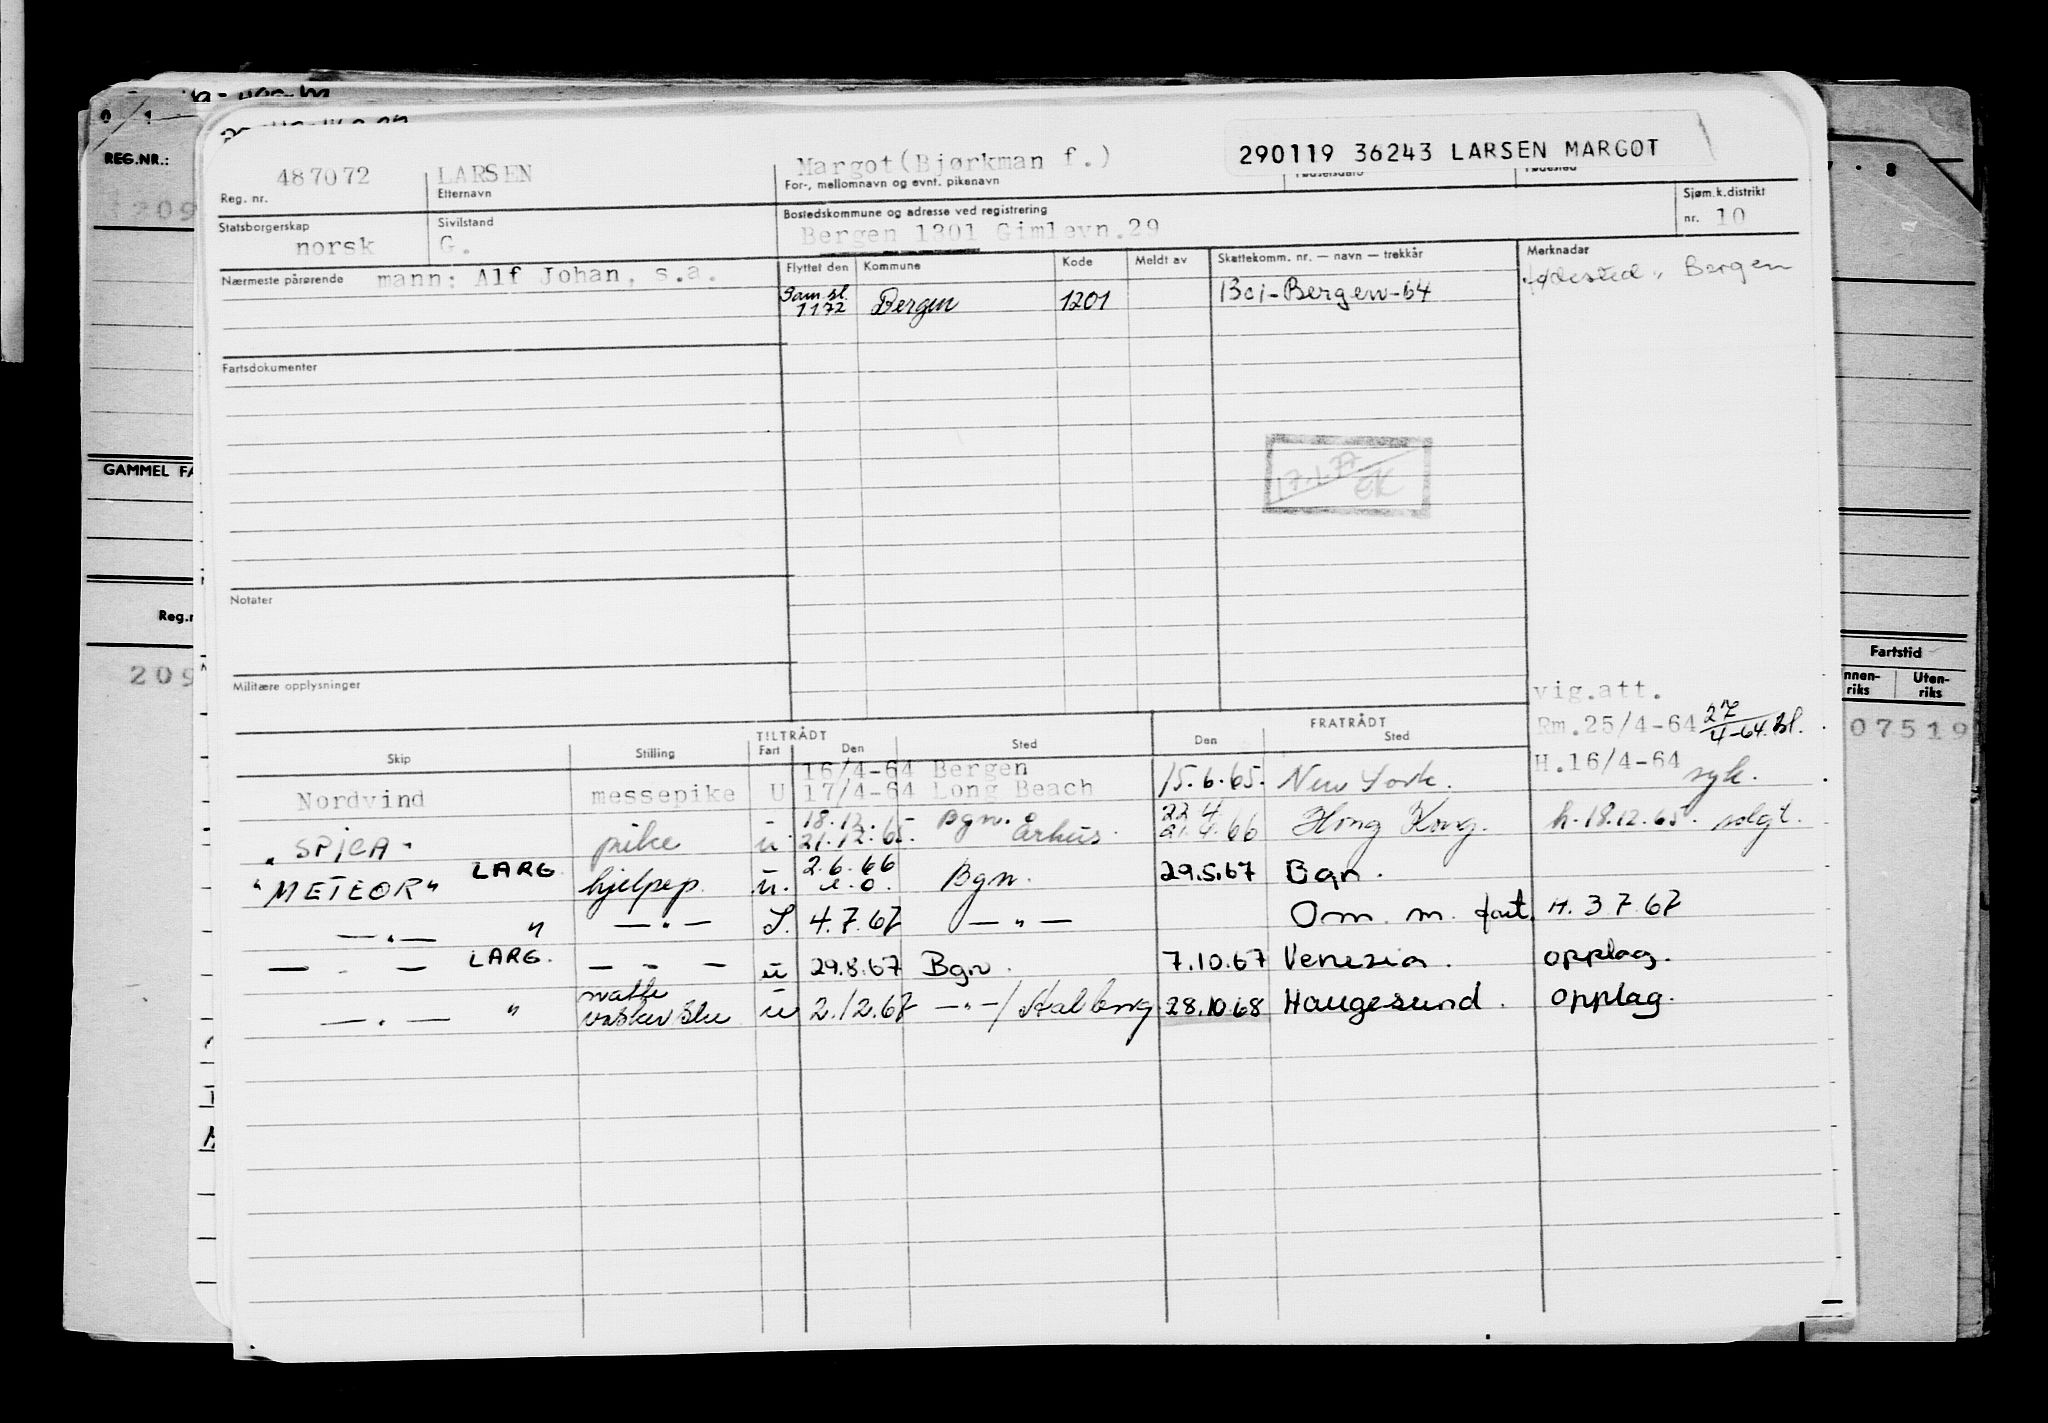 REG.NR.:
209
GAMMEL FA
Reg.n
209
290119 36243 LARSEN MARGOT
487072 LARSEN Margot(Bjørkman f.)
Reg. nr. Etternavn For-, mellomnavn og evnt. pikenavn Fødselsdato Fødested
Statsborgerskap Sivilstand Bostedskommune og adresse ved registrering Sjøm.k.distrikt
norsk G. Bergen 1301 Gimlevn.29 nr. 10
Nærmeste pårørende mann: Alf Johan, s.a. Flyttet den Kommune Kode Meldt av Skattekomm. nr. — navn — trekkår Merknader
Sam.sl. 1172 Bergen 1201 1301-Bergen-64 fødested: Bergen
Fartsdokumenter
17.1.77 EK
Notater
Militære opplysninger
vig.att.
Rm.25/4-64 27/4-64 Bl.
TILTRÅDT FRATRÅDT
Skip Stilling Fart Den Sted Den Sted
16/4-64 Bergen H.16/4-64
Nordvind messepike U 17/4-64 Long Beach 15.6.65. New York. syk.
18.12. - Bgn. 22.4
"SPICA" pike u 21.12.65. Århus. 21.4.66 Hong Kong. h.18.12.65. solgt.
"METEOR" LARG hjelpep. u. 2.6.66 Bgn. 29.5.67 Bgn.
— " — " — " — S. 4.7.67 — " — Om. m. fart. H. 3 7 67
— " — LARG. — " — u 29.8.67 Bgn. 7.10.67 Venezia. opplag.
— " — " u 2.12.67 — " — / Aalborg 28.10.68 Haugesund. opplag.
Fartstid
nnen-
riks
Uten-
riks
07519